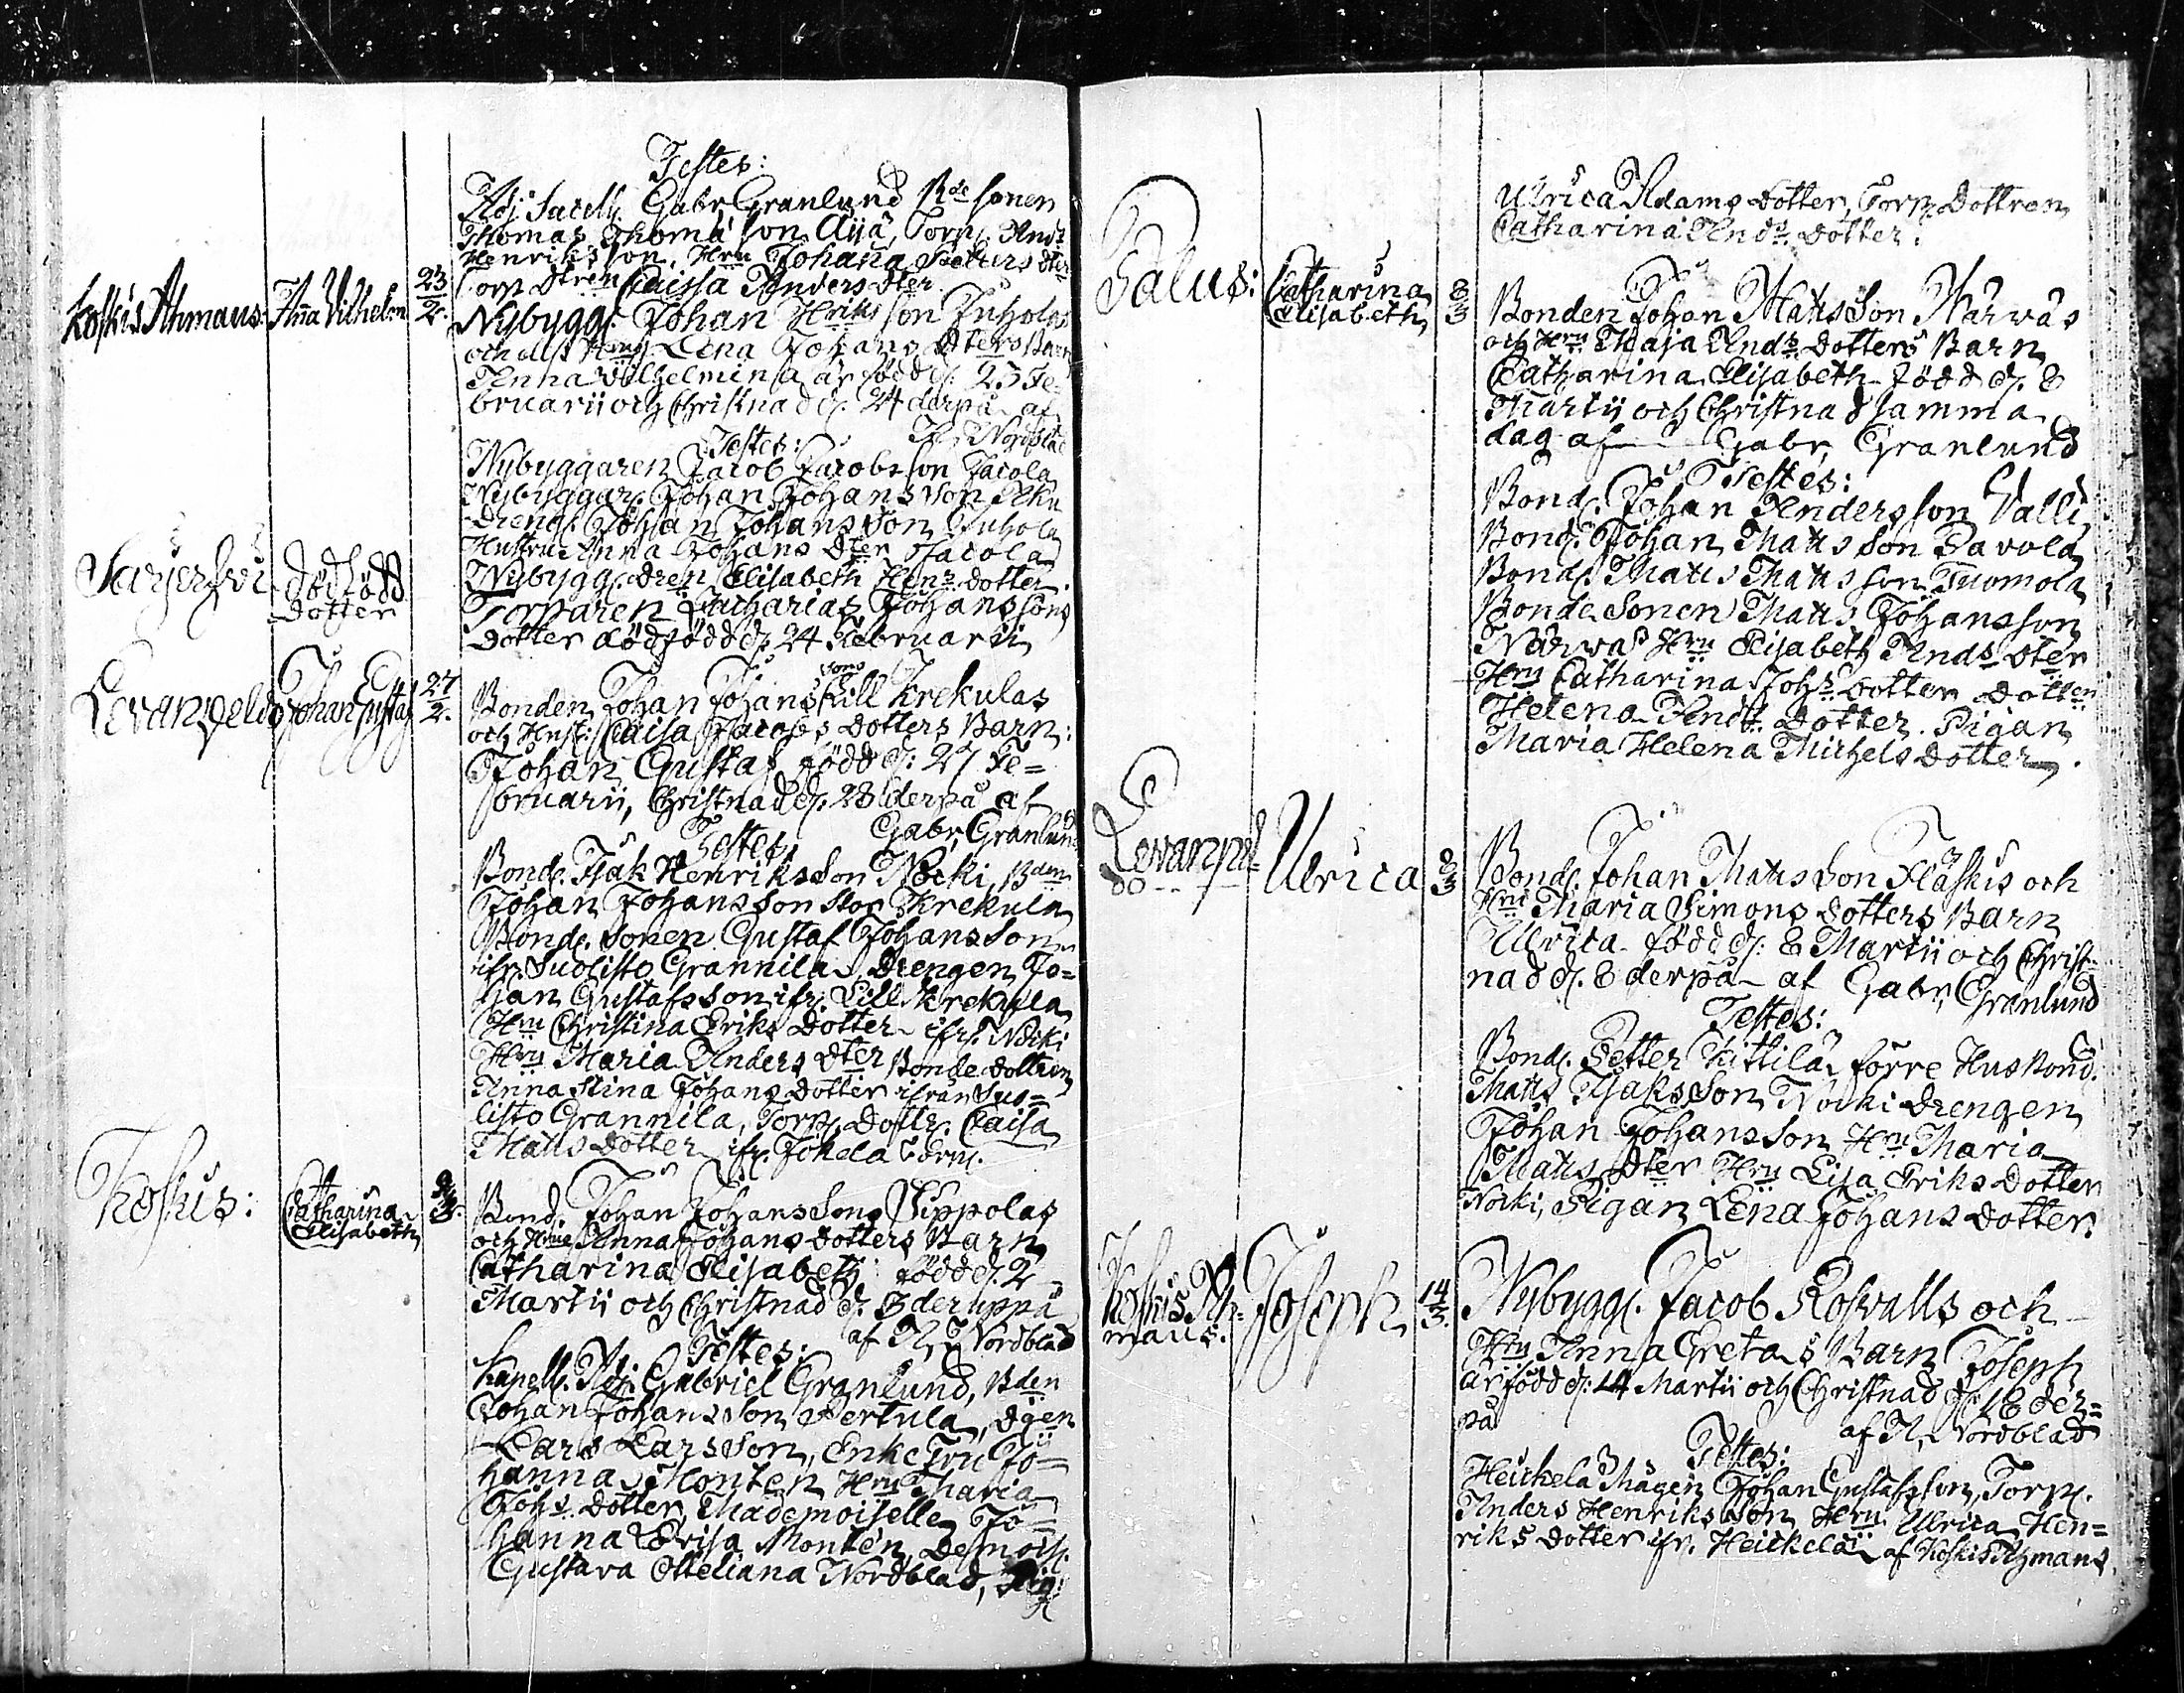 Testes:
Adj: Sacell. Gabr. Granlund Bde sonen
Thomas Thomä son Aijä, Torp. And:
Henriksson, Hru Johana Petters dter
Torp dtren Caissa Anders dter.
Koskis Ahmaus: Anna Vilhelm 23/2. Nybygg. Johan Hriks son Juholas
och dess Hru Lena Johans dters Barn
Anna Vilhelmina är född d. 23 Fe-
bruarii och Christnad d. 24 derpå af
Testes: A. Nordblad
Nybyggaren Jacob Jacobsson Jacola
Nybyggar. Johan Johansson Aku
dreng. Johan Johansson Juhola
Hustru Anna Johans dter Jacola
Nybygg. dren Elisabeth Henr. dotter.
dödfödd dotter Torparen Zacharias Johanssons
dotter dödfödd d. 24 Februarii
Johan Gustaf 27/2. Bonden Johan Johanssons Lill Krekulas
och Hust: Caisa Jacobs dotters Barn:
Johan Gustaf född d: 27 Fe=
bruarii, Christnad d. 28 derpå af
Testes, Gabr. Granlund
Bond. Isak Henriksson Nocki, Bden
Johan Johansson Stor Krekula
Bond. sonen Gustaf Johansson
ifr. Suolisto Grannila, Drengen Jo=
han Gustafsson ifr. Lill Krekula
Hru Christina Eriks dotter ifr. Nocki
Hru Maria Anders dter Bonde dottren
Anna Stina Johans dotter ifrån Suo=
listo Grannila, Torp. Dottr. Caisa
Matts dotter ifr. Jokela Torp.
Koskis: Catharina Elisabeth 2/3. Bond. Johan Johanssons Sippolas
och Hrus Anna Johans dotters Barn
Catharina Elisabeth: född d. 2
Martii och Christnad d. 3 deruppå
Testes: af A. Nordblad
Kapell. Adj. Gabriel Granlund, Bden
Johan Johansson Pertula, dgen
Lars Larsson, Enke Fru Jo=
hanna Monten Hru Maria
Johs. dotter, Mademoiselle Jo=
hanna Lovisa Montén, Demois.
Gustava Otteliana Nordblad, Pig:
Ulrica Adams dotter, Torp. Dottren
Catharina Ands. dotter.
Palus: Catharina Elisabeth 8/3 Bonden Johan Mattsson Närwäs
och Hru Maja Ands. dotters Barn
Catharina Elisabeth född d. 8
Martii och Christnad samma
dag af Gabr. Granlund
Testes:
Bond. Johan Andersson Valli
Bond. Johan Mattsson Pavola
Bond. Matts Mattsson Tuomola
Bonde Sonen Matts Johansson
Närwä Hru Elisabeth Ands dter
Hru Catharina Johs. dotter Dotter
Helena Ands dotter. Pigan
Maria Helena Michels dotter.
Levanpeldo Ulrica 8/3 Bond. Johan Mattsson Fläskis och
Hru Maria Simons dotters Barn
Ulrica född d: 8 Martii och Christ-
nad d. 8 derpå af Gabr. Granlund
Testes:
Bond. Petter Kittilä förre Husbond.
Matts Isaksson Nocki drengen
Johan Johansson Hru Maria
Matts dter Hru Lisa Eriks dotter
Nocki, Pigan Lena Johans dotter.
Koskis Ahmaus. Joseph 14/3. Nybygg. Jacob Rosvalls och
Hru Anna Gretas Barn Joseph
är född d: 14 Martii och Christnad d. 18 der=
på af A. Nordblad
Testes:
Heickelä Mågen Johan Gustafsson, Torp.
Anders Henriksson Hru Ulrica Hen=
riks dotter ifr. Heickelä af Koskis Ahmaus